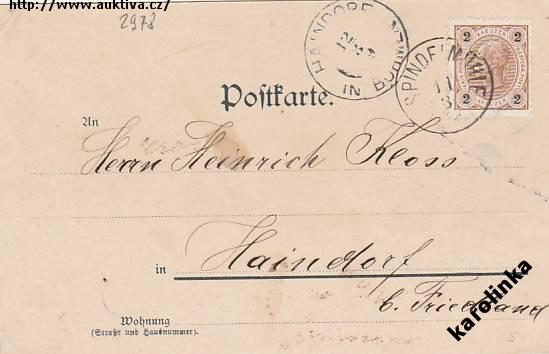 http://www.auktiva.cz/
2978
HAINDORF
IN BÖHMEN
SPINDELMÜHLE
11
2 2
2 2
Postkarte.
An
Herrn Heinrich Kloss
in Haindorf
b. Friedland
Wohnung
(Straße und Hausnummer).
karolinka